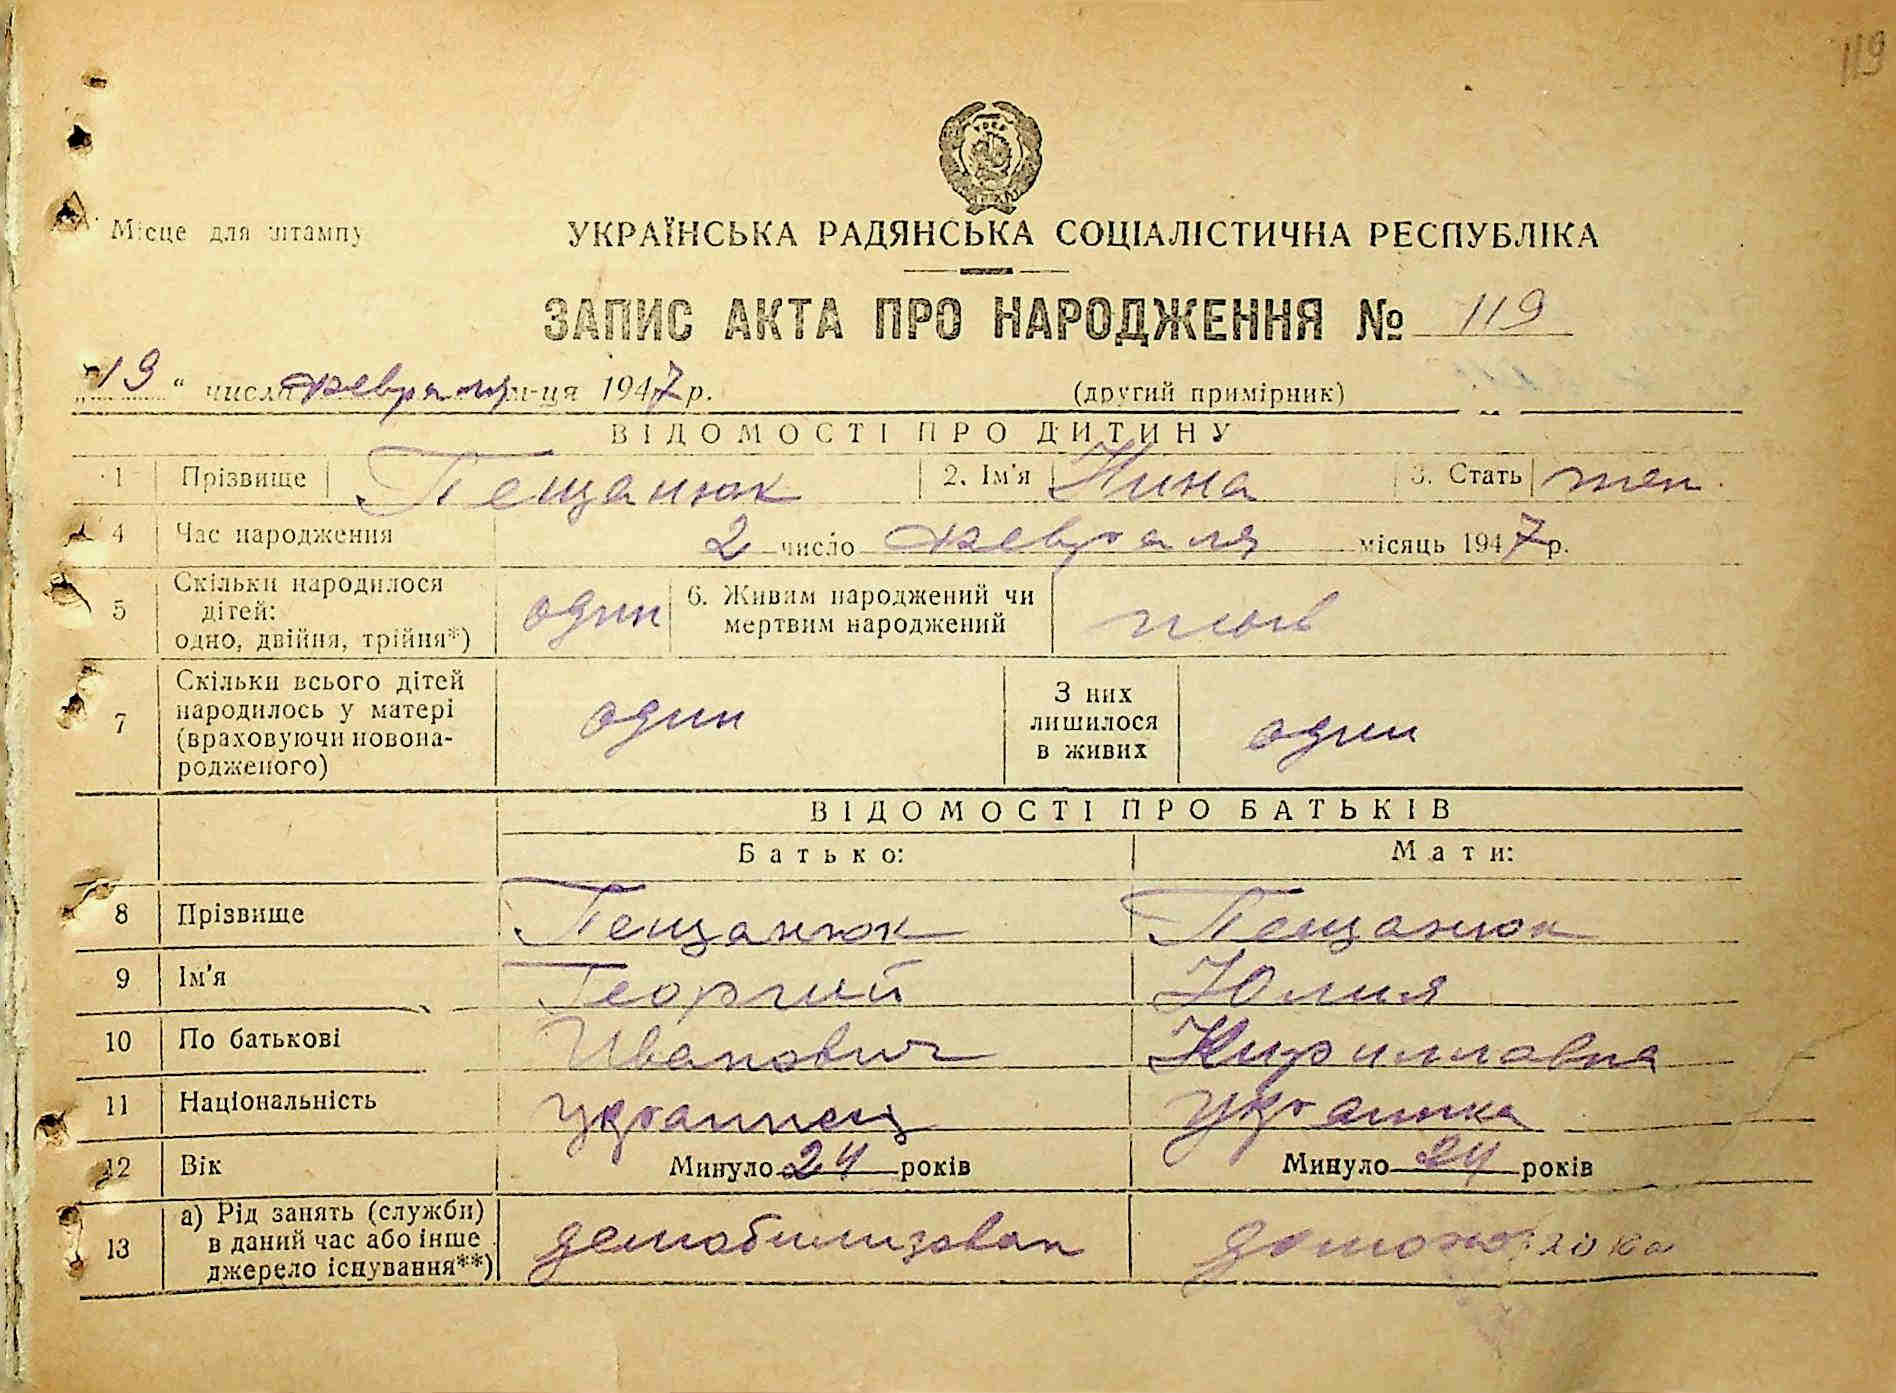 119
Місце для штампу
УКРАЇНСЬКА РАДЯНСЬКА СОЦІАЛІСТИЧНА РЕСПУБЛІКА
ЗАПИС АКТА ПРО НАРОДЖЕННЯ № 119
„19“ числа февраля м-ця 1947 р. (другий примірник)
ВІДОМОСТІ ПРО ДИТИНУ
1 Прізвище Пещанюк 2. Ім'я Нина 3. Стать жен.
4 Час народження 2 число февраля місяць 1947 р.
5 Скільки народилося дітей: одно, двійня, трійня*) один 6. Живим народжений чи мертвим народжений
7 Скільки всього дітей народилось у матері (враховуючи новонародженого) один З них лишилося в живих один
ВІДОМОСТІ ПРО БАТЬКІВ
Батько: Мати:
8 Прізвище Пещанюк Пещанюк
9 Ім'я Георгий Юлия
10 По батькові Иванович Кирилловна
11 Національність украинец украинка
12 Вік Минуло 24 років Минуло 24 років
13 а) Рід занять (служби) в даний час або інше джерело існування**) демобилизован домохозяйка